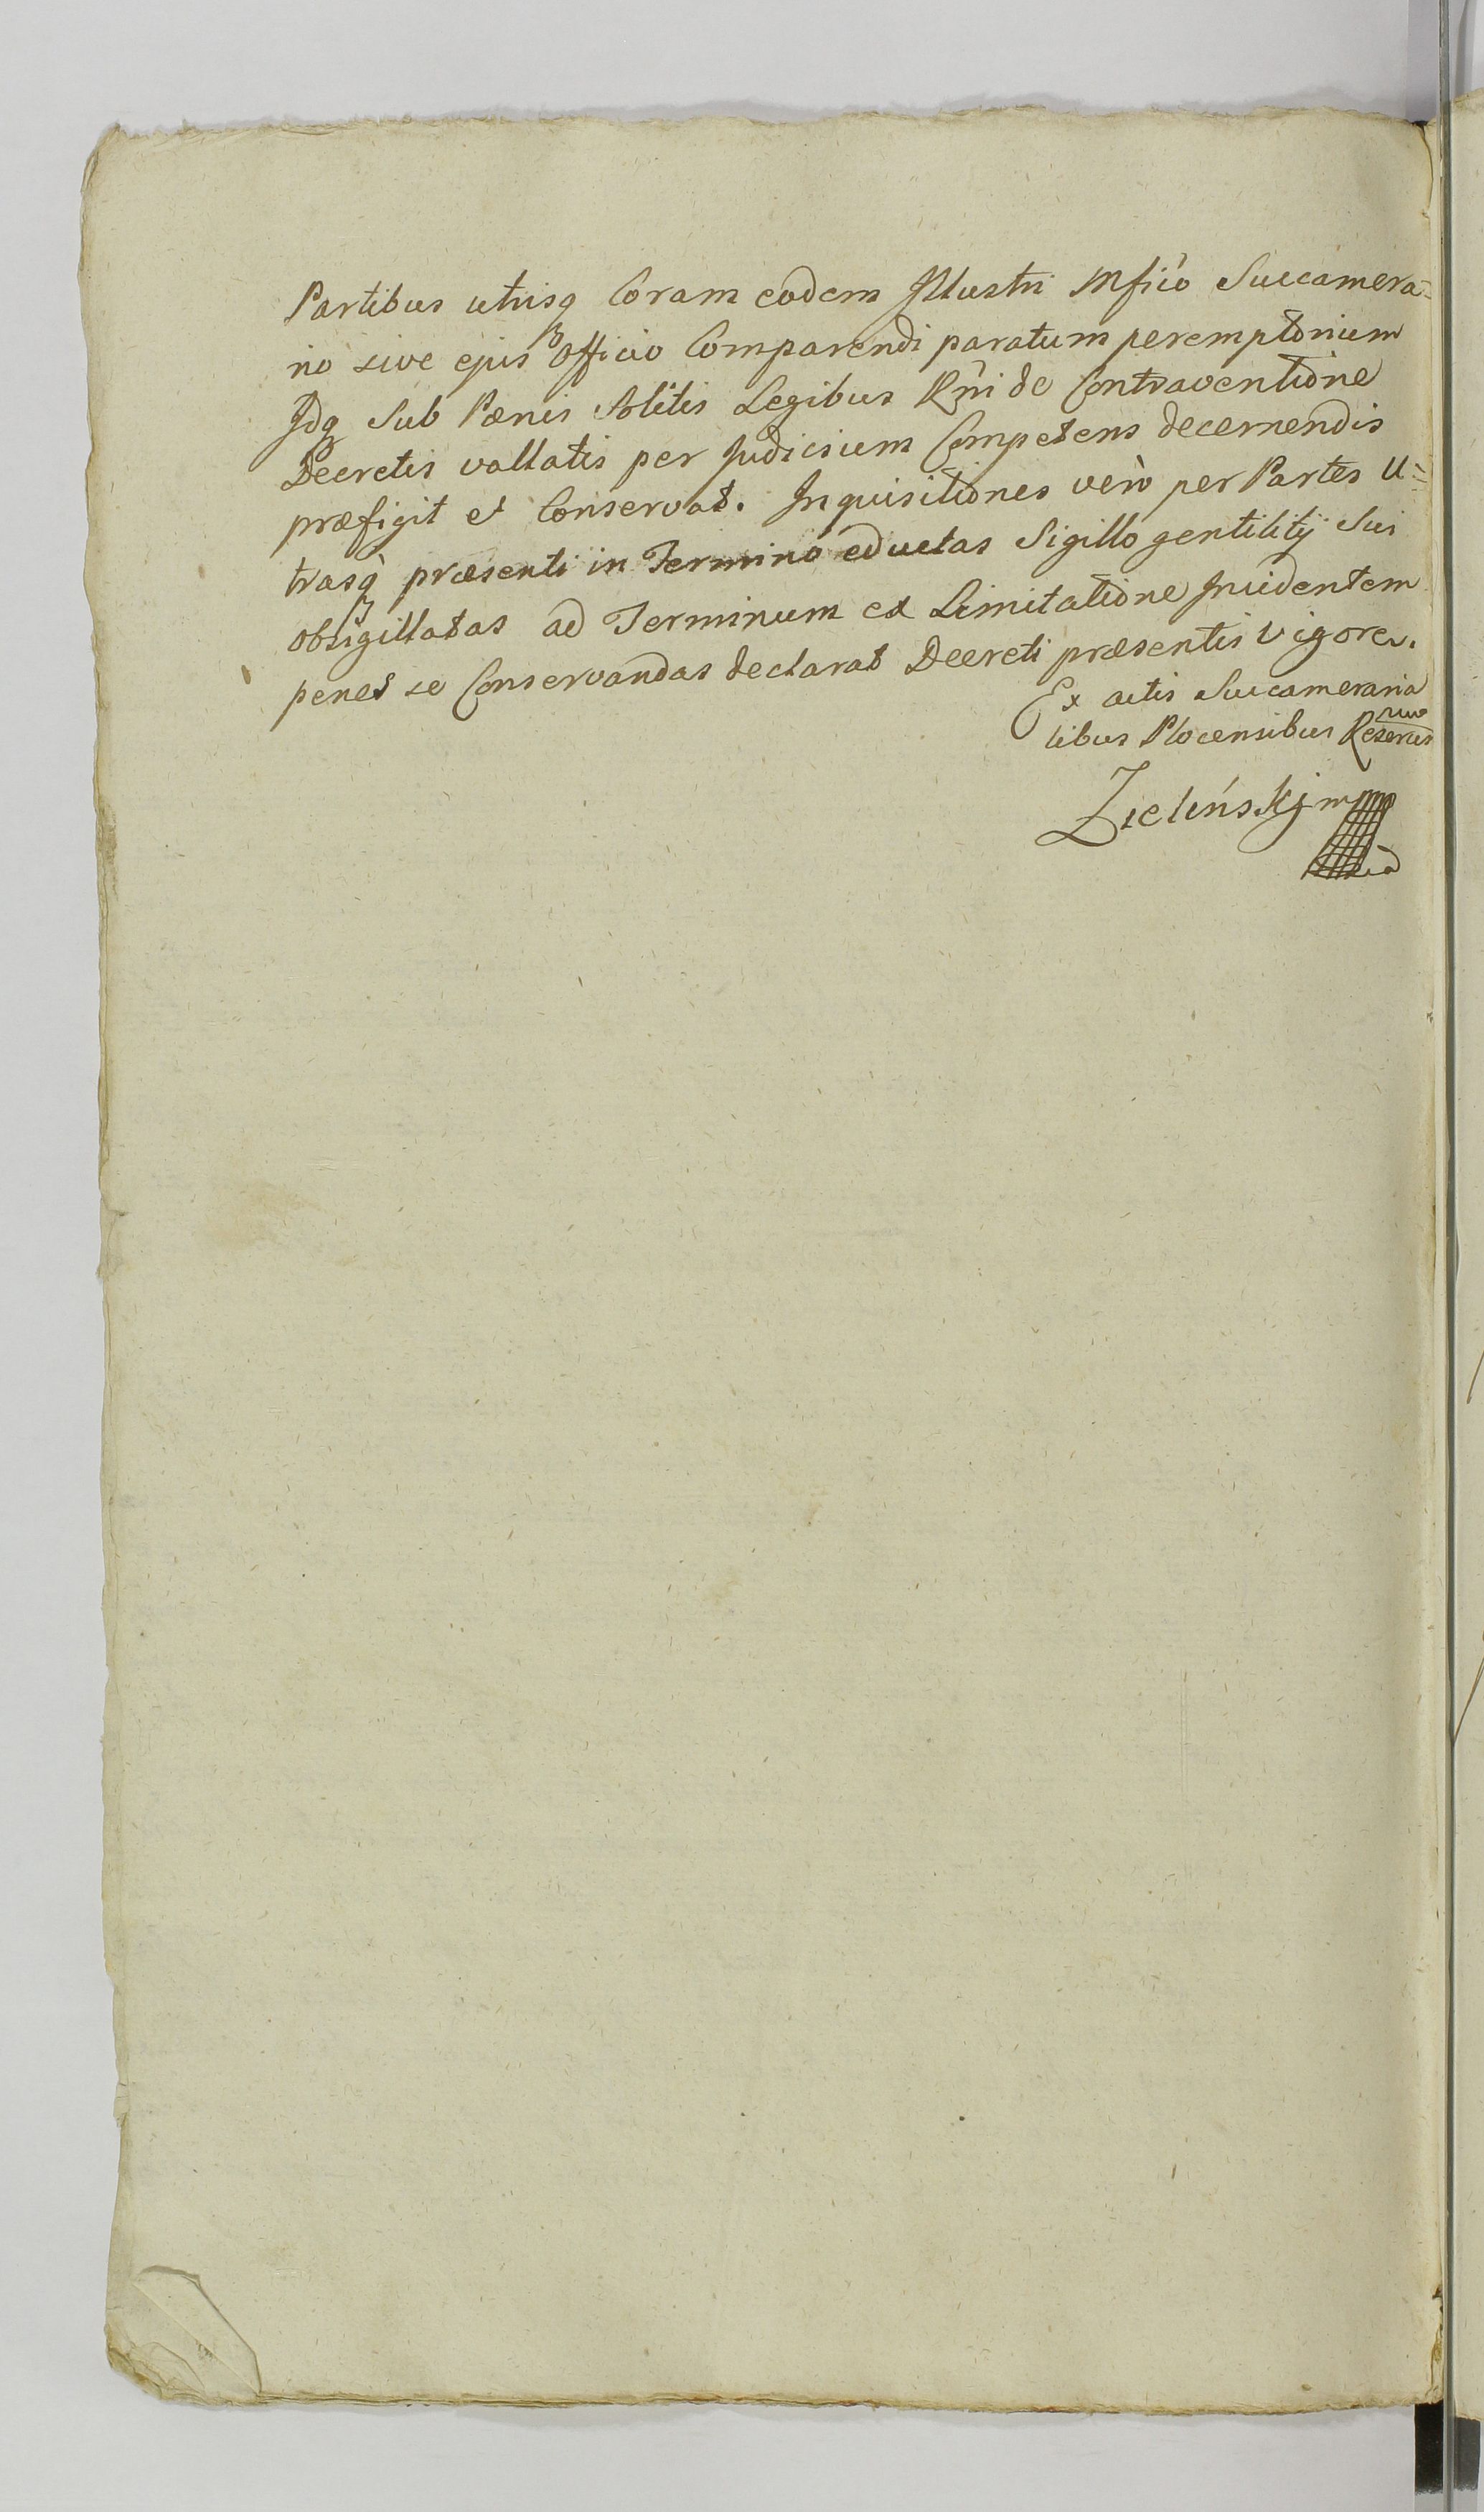 Partibus utrisq Coram eodem Illustri Mfico Succamera=
rio sive ejus Officio Comparendi paratum peremptorium
Idq Sub Pœnis Solitis Legibus Rgni de Contraventione
Decretis vallatis per Judicium Competens decernendis
præfigit et Conservat. Inquisitiones verò per Partes U=
trasq præsenti in Termino eductas Sigillo gentilitÿ Sui
obsigillatas ad Terminum ex Limitatione Incidentem
penes se Conservandas declarat Decreti præsentis vigore.
Ex actis Succameraria
libus Plocensibus
Zielinskj mpp